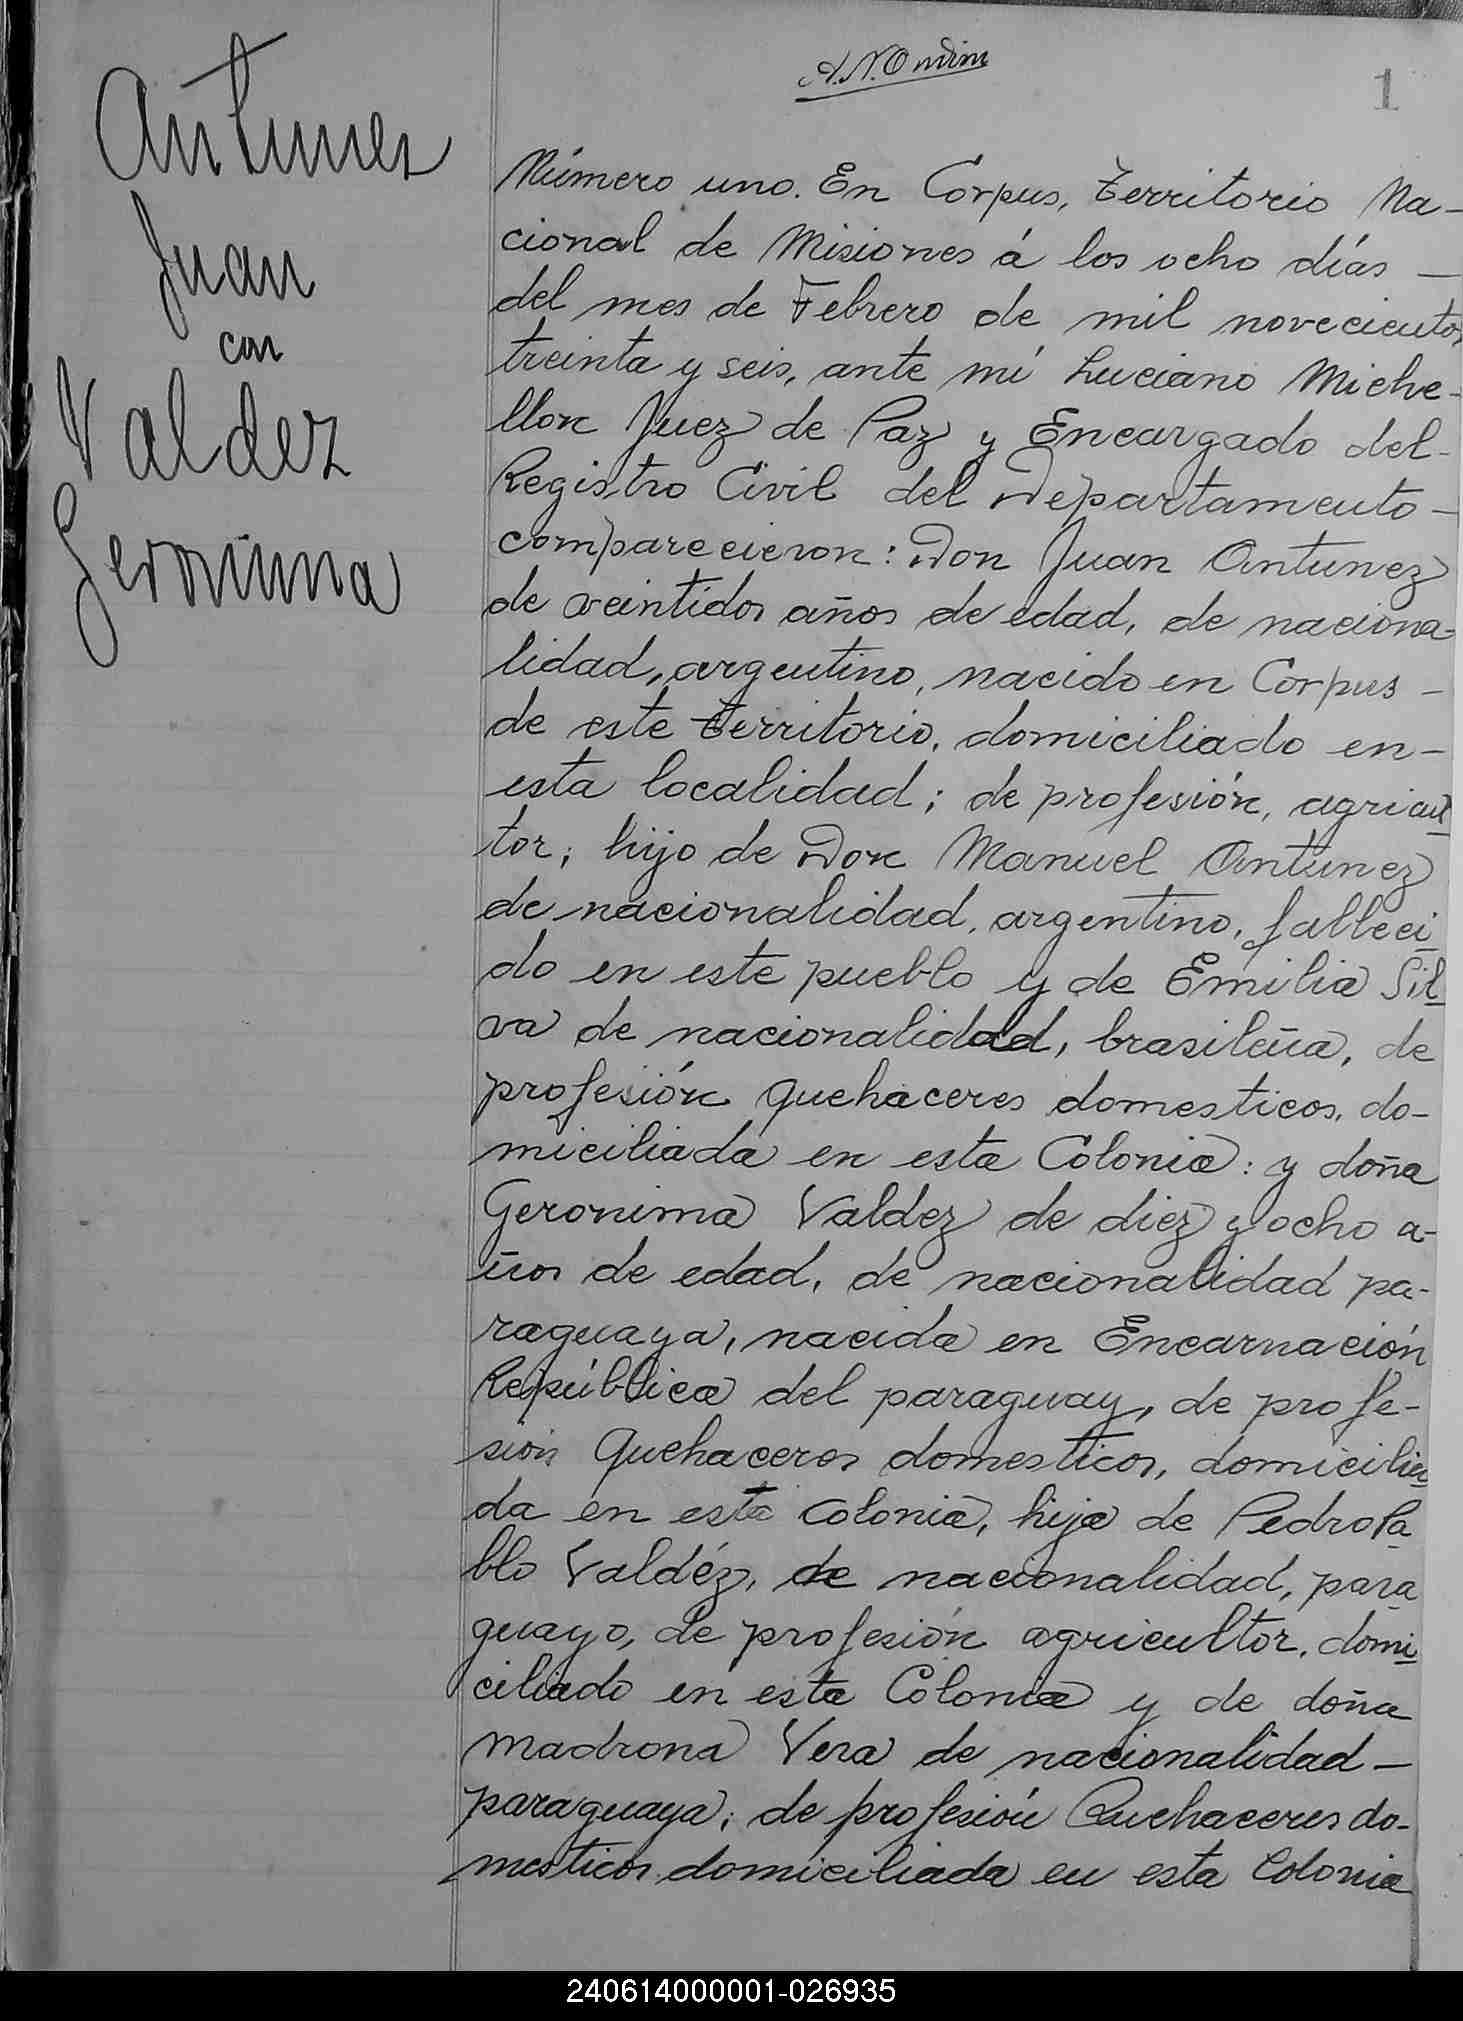 Antunes
Juan
con
Valdez
Geronima
1
Número uno. En Corpus, territorio Na-
cional de Misiones á los ocho días —
del mes de Febrero de mil novecientos
treinta y seis, ante mí Luciano Miche-
llon Juez de Paz y Encargado del-
Registro Civil del Departamento-
comparecieron: Don Juan Antunez
de veintidos años de edad, de naciona-
lidad, argentino, nacido en Corpus -
de este territorio, domiciliado en-
esta localidad; de profesión, agricul
tor; hijo de Don Manuel Antunez
de nacionalidad, argentino, falleci
do en este pueblo y de Emilia Sil
va de nacionalidad, brasileña, de
profesión quehaceres domesticos, do-
miciliada en esta Colonia: y doña
Geronima Valdez de diez y ocho a-
ños de edad, de nacionalidad pa-
raguaya, nacida en Encarnación
República del paraguay, de profe-
sión Quehaceres domesticos, domicilia
da en esta colonia, hija de Pedro Pa
blo Valdéz, de nacionalidad, para
guayo, de profesión agricultor, domi
ciliado en esta Colonia y de doña
madrona Vera de nacionalidad —
paraguaya; de profesión Quehaceres do-
mesticos domiciliada en esta Colonia
240614000001-026935